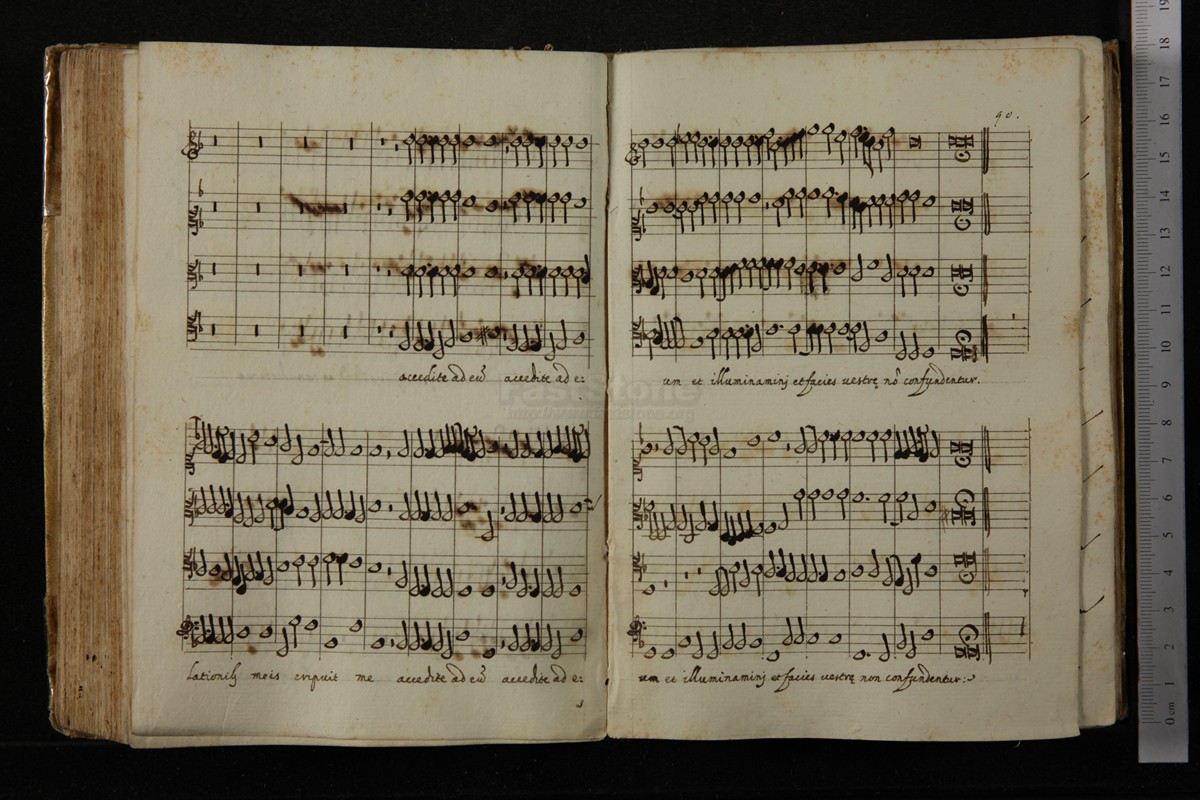 90.
accedite ad eũ accedite ad e:
um et illuminaminj et facies vestrę nõ confundentur.
lationibꝫ meis eripuit me accedite ad eũ accedite ad e:
um et illuminaminj et facies vestrę non confundentur:
FastStone
0 cm 1 2 3 4 5 6 7 8 9 10 11 12 13 14 15 16 17 18 19